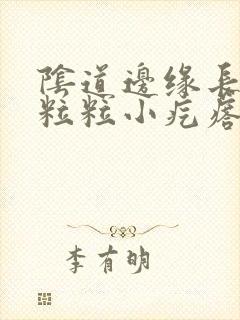 陰道邊緣長
粒粒小疙瘩
李有明